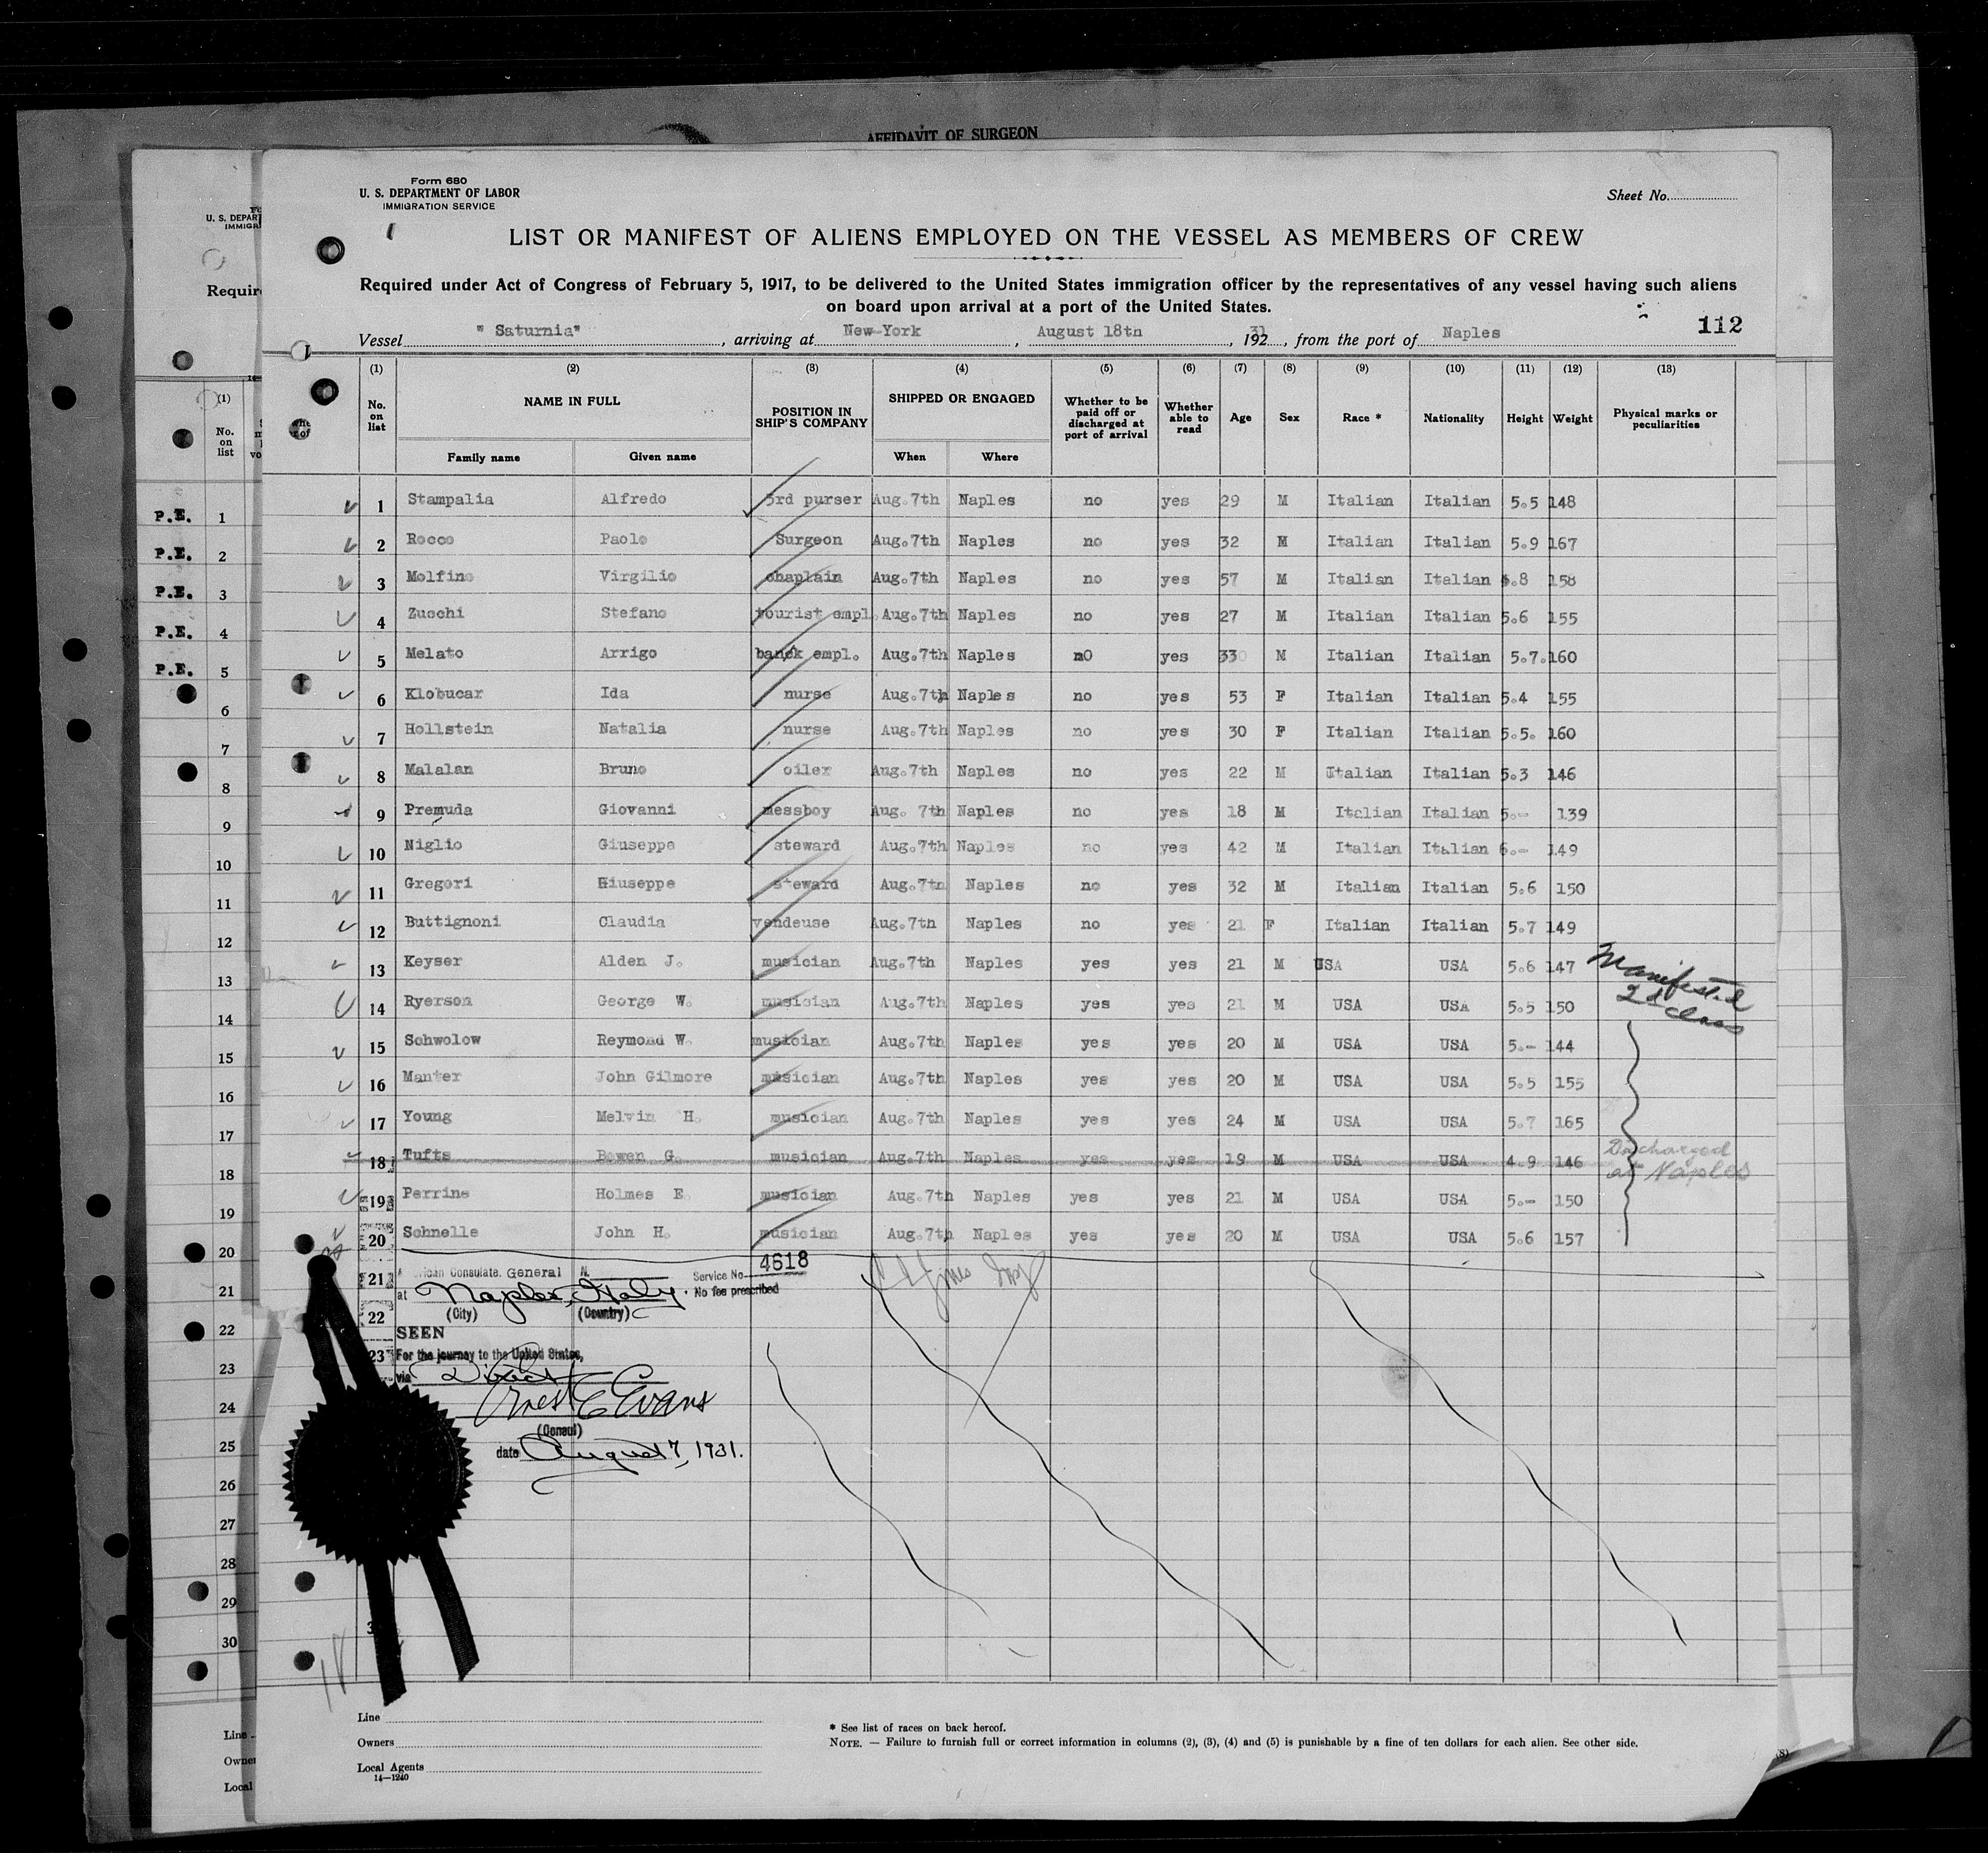 AFFIDAVIT OF SURGEON
Form 680
U. S. DEPARTMENT OF LABOR
IMMIGRATION SERVICE
Sheet No.
LIST OR MANIFEST OF ALIENS EMPLOYED ON THE VESSEL AS MEMBERS OF CREW
Required under Act of Congress of February 5, 1917, to be delivered to the United States immigration officer by the representatives of any vessel having such aliens
on board upon arrival at a port of the United States.
112
Vessel " Saturnia" , arriving at New-York , August 18th , 192 31 , from the port of Naples
(1) (2) (3) (4) (5) (6) (7) (8) (9) (10) (11) (12) (13)
No. on list NAME IN FULL POSITION IN SHIP'S COMPANY SHIPPED OR ENGAGED Whether to be paid off or discharged at port of arrival Whether able to read Age Sex Race * Nationality Height Weight Physical marks or peculiarities
Family name Given name When Where
1 Stampalia Alfredo 3rd purser Aug.7th Naples no yes 29 M Italian Italian 5.5 148
2 Rocco Paolo Surgeon Aug.7th Naples no yes 32 M Italian Italian 5.9 167
3 Molfino Virgilio chaplain Aug.7th Naples no yes 57 M Italian Italian 5.8 158
4 Zucchi Stefano tourist empl. Aug.7th Naples no yes 27 M Italian Italian 5.6 155
5 Melato Arrigo banck empl. Aug.7th Naples nO yes 33 M Italian Italian 5.7. 160
6 Klobucar Ida nurse Aug.7th Naples no yes 53 F Italian Italian 5.4 155
7 Hollstein Natalia nurse Aug.7th Naples no yes 30 F Italian Italian 5.5. 160
8 Malalan Bruno oiler Aug.7th Naples no yes 22 M Italian Italian 5.3 146
9 Premuda Giovanni messboy Aug. 7th Naples no yes 18 M Italian Italian 5.- 139
10 Niglio Giuseppe steward Aug.7th Naples no yes 42 M Italian Italian 6.- 149
11 Gregori Giuseppe steward Aug.7th Naples no yes 32 M Italian Italian 5.6 150
12 Buttignoni Claudia vendeuse Aug.7th Naples no yes 21 F Italian Italian 5.7 149
13 Keyser Alden J. musician Aug.7th Naples yes yes 21 M USA USA 5.6 147 Manifested
14 Ryerson George W. musician Aug.7th Naples yes yes 21 M USA USA 5.5 150 2d class
15 Schwolow Reymond W. musician Aug.7th Naples yes yes 20 M USA USA 5.- 144
16 Manter John Gilmore musician Aug.7th Naples yes yes 20 M USA USA 5.5 155
17 Young Melvin H. musician Aug.7th Naples yes yes 24 M USA USA 5.7 165
18 Tufts Bowen G. musician Aug.7th Naples yes yes 19 M USA USA 4.9 146 Discharged at Naples
19 Perrine Holmes E. musician Aug.7th Naples yes yes 21 M USA USA 5.- 150
20 Schnelle John H. musician Aug.7th Naples yes yes 20 M USA USA 5.6 157
21
22
23
American Consulate General
Service No. 4618
No fee prescribed
at Naples, Italy.
(City) (Country)
SEEN
For the journey to the United States,
via Direct
Ernest E Evans
(Consul)
date August 7, 1931.
18
Line
Owners
Local Agents
14—1240
* See list of races on back hereof.
NOTE. — Failure to furnish full or correct information in columns (2), (3), (4) and (5) is punishable by a fine of ten dollars for each alien. See other side.
U. S. DEPAR
IMMIGR
Requir
(1)
No.
on
list
P.E. 1
P.E. 2
P.E. 3
P.E. 4
P.E. 5
6
7
8
9
10
11
12
13
14
15
16
17
18
19
20
21
22
23
24
25
26
27
28
29
30
Line
Owner
Local
(8)